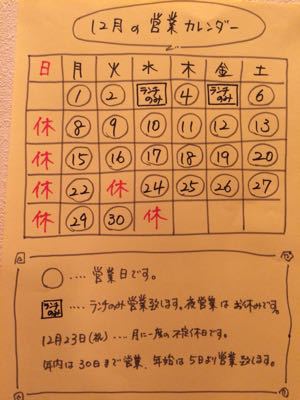 12月の営業カレンダー
日 月 火 水 木 金 土
1 2 ランチのみ 4 ランチのみ 6
休 8 9 10 11 12 13
休 15 16 17 18 19 20
休 22 休 24 25 26 27
休 29 30 休
‥‥営業日です。
ランチのみ ‥‥ランチのみ営業致します。夜営業はお休みです。
12月23日(祝)‥‥月に一度の不定休日です。
年内は30日まで営業、年始は5日より営業致します。